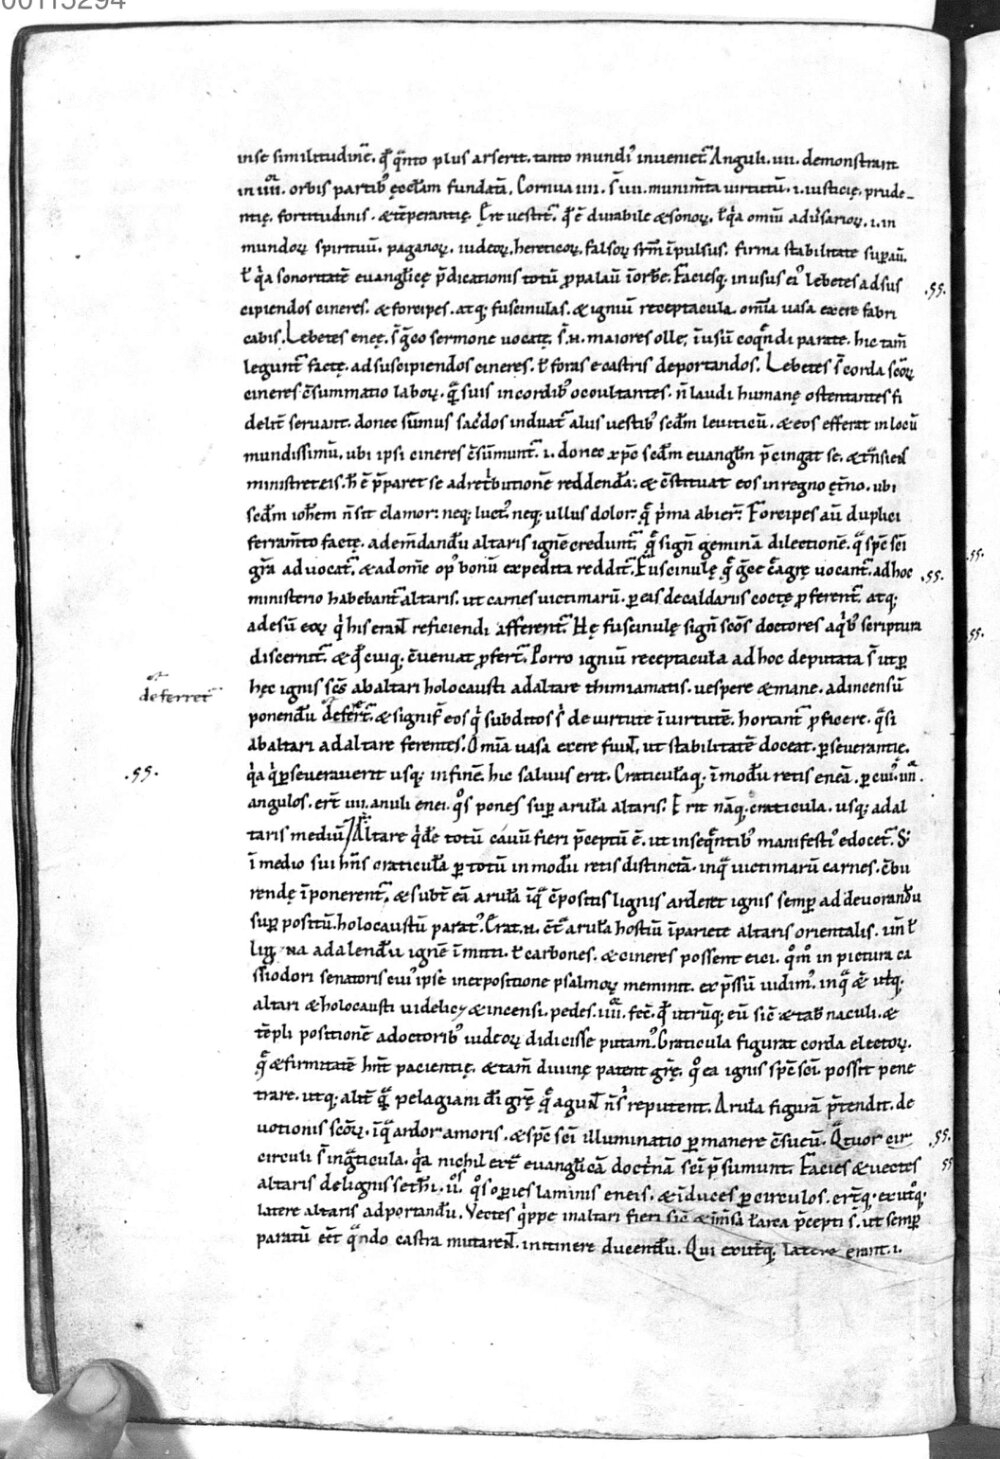 00115294
in se similitudinē. q̄ q̄nto plus arserit. tanto mundi᷒ inveniet᷑ Anguli. iiii. demonstrant
in iiii. orbis partib᷒ ęcclam fundatā. Cornua iiii. s̄ iiii. munim̄ta virtutū. i. iusticię, prude-
ntię. fortitudinis. & tēperantię. q̄ ē durabile & sonoꝝ. adu̾sarioꝝ. i. in
mundoꝝ spirituū. paganoꝝ. iudeoꝝ. hereticoꝝ. falsoꝝ frm̄ īpulsus. firma stabilitate
ł q̇a sonoritatē evanglicę p̄dicationis totū ꝓpalaū ī orbe. Faciesq; in usus ei᷒ lebetes ad sus
cipiendos cineres. & forcipes. atq; fuscinulas. & igniū receptacula. omīa vasa ex ere fabri
cabis. Lebetes eneę. s̄ g̅co sermone vocatę. s̄.n. maiores ollę; ī usū coq̄ndi paratę. hic tam̄
legunt᷑ factę. ad suscipiendos cineres. ł foras e castris deportandos. Lebetes s̄ corda scōꝝ
cineres c̄summatio laboꝝ. q̄ suis in cordib᷒ occultantes. n̄ laudi humanę ostentantes fi
delit᷑ servant. donec sūmus sac̾dos induat᷑ alus vestib᷒ scd̄m leviticū. & eos efferat in locū
mundissimū. ubi ipsi cineres c̄sūmunt᷑. i. donec xp̄c scd̄m evanglm̄ p̄cingat se. & t̄nsiens
ministret eis. h̄ ē p̄paret se ad ret̾butionē reddendā: & c̄stituat eos in regno ęt̾no. ubi
scd̄m ioh̄em n̄ sit clamor: neq; luct᷒ neq; ullus dolor: q̄ p̾ma abier̄. Forcipes aū duplici
ferram̄to factę. ad em̄dandū altaris ignē credunt᷑. q̄ sign̄ geminā dilectionē. q̄ sp̄c sc̄i
grā advocat᷑. & ad om̄e op᷒ bonū expedita reddit᷑. Fuscinulę q̄ g̅ce c̄agrę vocant᷑. ad hoc
ministerio habebant᷑ altaris. ut carnes victimarū. ꝑ eas de caldariis coctę ꝓferent᷑. atq;
ad esū eoꝝ q̇ his erant reficiendi afferent᷑. Hę fuscinulę sign̄ scōs doctores a q̇b᷒ scriptura
discernit᷑. & q̄ cuiq; c̄veniat ꝓfert᷑. Porro igniū receptacula ad hoc deputata s̄ ut ꝑ
hęc ignis sc̄s ab altari holocausti ad altare thimiamatis. vespere & mane. ad incensū
deferret᷑
ponendū deferr̄t. & signif̄ eos q̇ subditos s̄ de virtute ī virtutē. hortant᷑ ꝓficere. q̄si
ab altari ad altare ferentes. Omīa vasa ex ere fiunt. ut stabilitatē doceat. ꝑseverantię.
q̇a q̇ ꝑseveraverit usq; in finē. hic salvus erit. Craticulāq; ī modū retis eneā. ꝑ cui᷒.
angulos. ert̄ iiii. anuli enei. q̊s pones sup̱ arulā altaris. Erit nāq; craticula. usq; ad al
taris mediū. Altare q̇dē totū cavū fieri p̄ceptū ē. ut in seq̄ntib᷒ manifesti᷒ edocet᷑. S;
ī medio sui hn̄s craticulā ꝑ totū in modū retis distinctā. in q̄ victimarū carnes. c̄bu
rendę īponerent᷑. & subt᷑ eā arulā ī q̄ c̄positis lignis arderet ignis semꝑ ad devorandū
suꝑ positū. holocaustū parat᷒. Erat.n. arulā hostiū ī pariete altaris orientalis. un̄ ł
lig na ad alendū ignē īmitti. ł carbones. & cineres possent eici. q̊m̄ in pictura ca
ssiodori senatoris cui᷒ ipse in expositione psalmoꝝ meminit. ex p̄ssū vidim᷒. in q̄ & ut̾q;
altari & holocausti videlicet & incensi. pedes. iiii. fec̄. q̄ utrūq; eū sic̄ & tab̄naculi. &
tēpli positionē a doctorib᷒ iudeoꝝ didicisse putam᷒. Craticula figurat corda electoꝝ.
q̄ & firmitatē hn̄t pacientię. & tam̄ divinę patent grę. q̊ ea ignis sp̄c sc̄i. possit pene
trare. utq; alit̄ q̄ pelagiani di grę q̄ agunt n̄s᷑ reputent. Arula figurā p̄tendit. de
votionis scōꝝ. ī q̄ ardor amoris. & sp̄c sc̄i illuminatio ꝑmanere c̄sucū. Q̄tuor cir
circuli s̄ in q̄ticula. q̇a nichil ext̄ evanglicā doct̾nā sc̄i p̄sumunt. Facies & vectes
altaris de lignis sethī. ii᷒. q̊s oꝑies laminis eneis. & īduces ꝑ circulos. ert̄q; ex ut̊q;
latere altaris ad portandū. Vectes q̇ppe in altari fieri sic̄ & īm̄sā ł arca p̄cepti s̄. ut semꝑ
paratū eēt q̄ndo castra mutarent. in itinere ducendū. Qui ex ut̾q; latere erant. i.